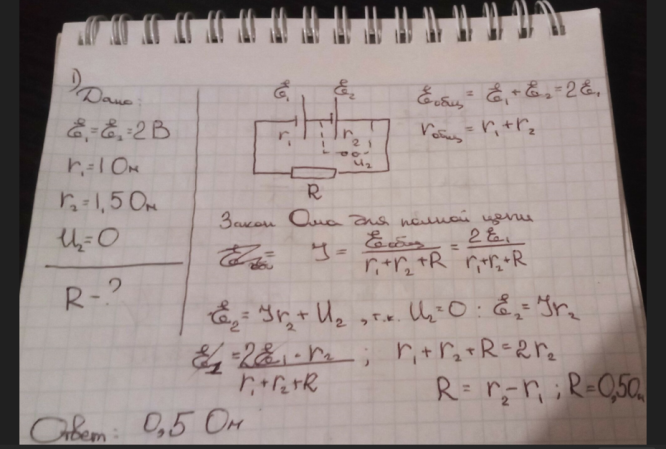 1)
Дано:
ℰ₁=ℰ₂=2В
r₁=1Ом
r₂=1,5Ом
U₂=0
R-?
ℰ₁ ℰ₂
r₁ r₂
U₂
R
ℰобщ = ℰ₁+ℰ₂=2ℰ₁
rобщ = r₁+r₂
Закон Ома для полной цепи
J = ℰобщ / (r₁+r₂+R) = 2ℰ₁ / (r₁+r₂+R)
ℰ₂ = Jr₂ + U₂, т.к. U₂=0 : ℰ₂ = Jr₂
ℰ₁ = 2ℰ₁·r₂ / (r₁+r₂+R) ; r₁+r₂+R=2r₂
R = r₂-r₁ ; R=0,5Ом
Ответ: 0,5 Ом